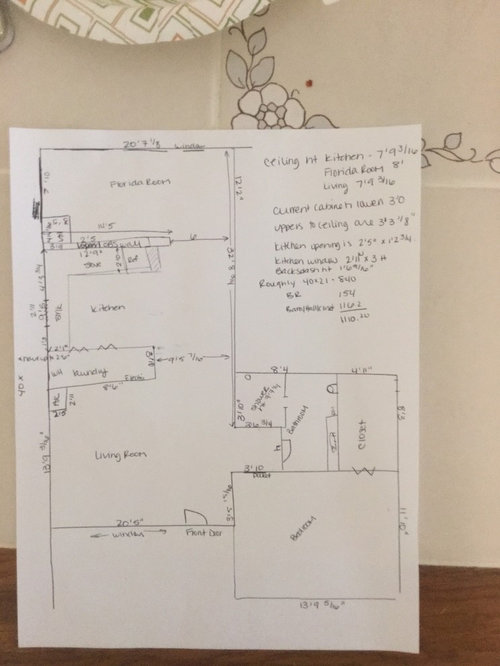 20'7 1/8
window
Ceiling ht Kitchen - 7'9 3/16
Florida Room 8'
Living 7'9 3/16
Florida Room
12'2"
Current cabinet lower 3'0
uppers to ceiling are 3'3 7/8"
11'5
2'5
6'
Kitchen opening is 2'5" x 1'2 3/4
12'9"
Stove
Ref
Kitchen window 2'11" x 3 H
Backsplash ht 1'6 5/16"
Roughly 40x21 - 840
32' 8 3/4
BR 154
116.2
1110.20
Kitchen
2'11
9'5 7/16"
WH
laundry
8'6"
40 x
2'11
8'4
4'11"
Shower
Bathroom
Closet
3'10"
3'6 3/4
8'3
13'9 5/16"
Living Room
3'10
Pocket
20'5"
window
Front Door
Bedroom
11'10"
13'9 5/16"